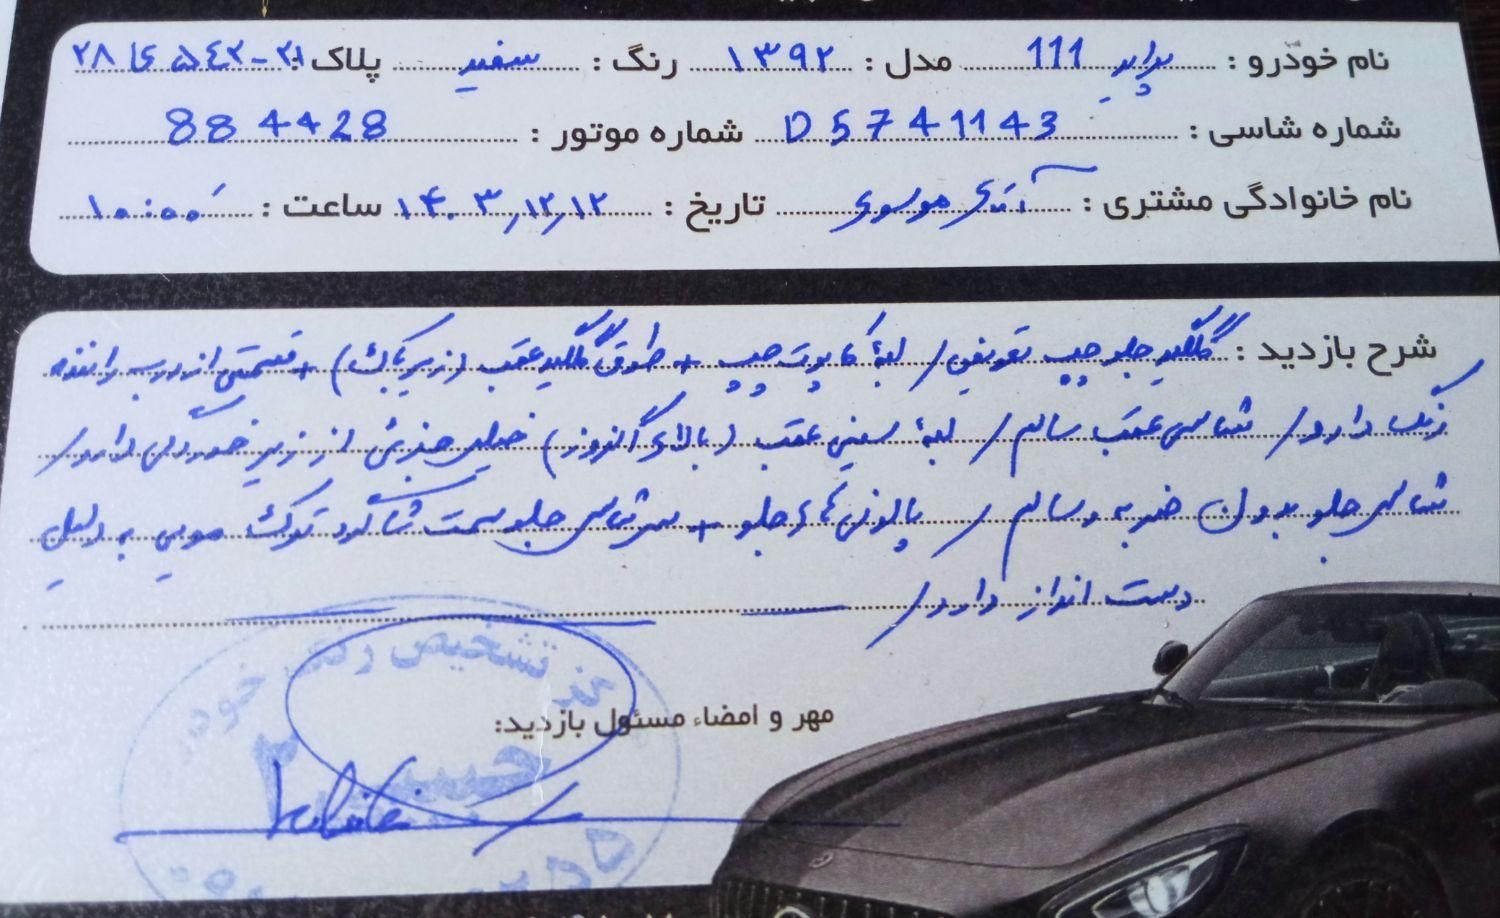 نام خودرو : پراید 111 مدل : ۱۳۹۲ رنگ : سفید پلاک : ۲۱-۵۴۲ ط ۲۸
شماره شاسی : D5741143 شماره موتور : 884428
نام خانوادگی مشتری : آقای موسوی تاریخ : ۱۴۰۳/۱۲/۱۲ ساعت : ۱۰:۰۰
شرح بازدید : گلگیر جلو چپ تعویض / لبهٔ کاپوت چپ + طوقی گلگیر عقب (زیر باک) + قسمتی از درب راننده
رنگ دارد / شاسی عقب سالم / لبهٔ سینی عقب (بالای اگزوز) خیلی جزئی از زیر خوردگی دارد /
شاسی جلو بدون ضربه و سالم / پالونی های جلو + سر شاسی جلو سمت شاگرد ترک مویی به دلیل
دست انداز دارد /
مهر و امضاء مسئول بازدید:
تشخیص رنگ خودرو